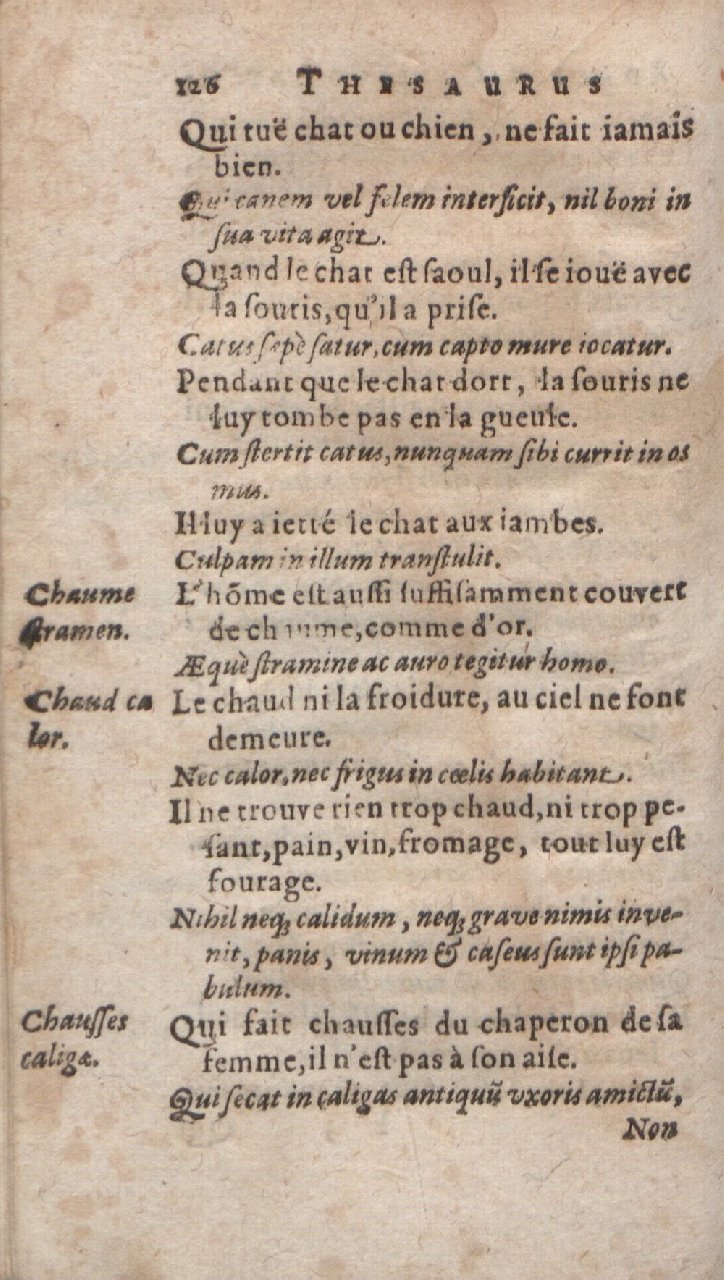 126 THESAURUS
Qui tuë chat ou chien, ne fait iamais
bien.
Qui canem vel felem interficit, nil boni in
ſua vita agit.
Quand le chat eſt ſaoul, il ſe iouë avec
la ſouris, qu'il a priſe.
Catus ſæpè ſatur, cum capto mure iocatur.
Pendant que le chat dort, la ſouris ne
luy tombe pas en la gueule.
Cum ſtertit catus, nunquam ſibi currit in os
mus.
Il luy a ietté le chat aux iambes.
Culpam in illum tranſtulit.
Chaume
ſtramen.
L'hõme eſt auſſi ſuffiſamment couvert
de chaume, comme d'or.
Æquè ſtramine ac auro tegitur homo.
Chaud ca
lor.
Le chaud ni la froidure, au ciel ne font
demeure.
Nec calor, nec frigus in cœlis habitant.
Il ne trouve rien trop chaud, ni trop pe-
ſant, pain, vin, fromage, tout luy eſt
fourage.
Nihil neq; calidum, neq; grave nimis inve-
nit, panis, vinum & caſeus ſunt ipſi pa-
bulum.
Chauſſes
caligæ.
Qui fait chauſſes du chaperon de ſa
femme, il n'eſt pas à ſon aiſe.
Qui ſecat in caligas antiquũ vxoris amictũ,
Non